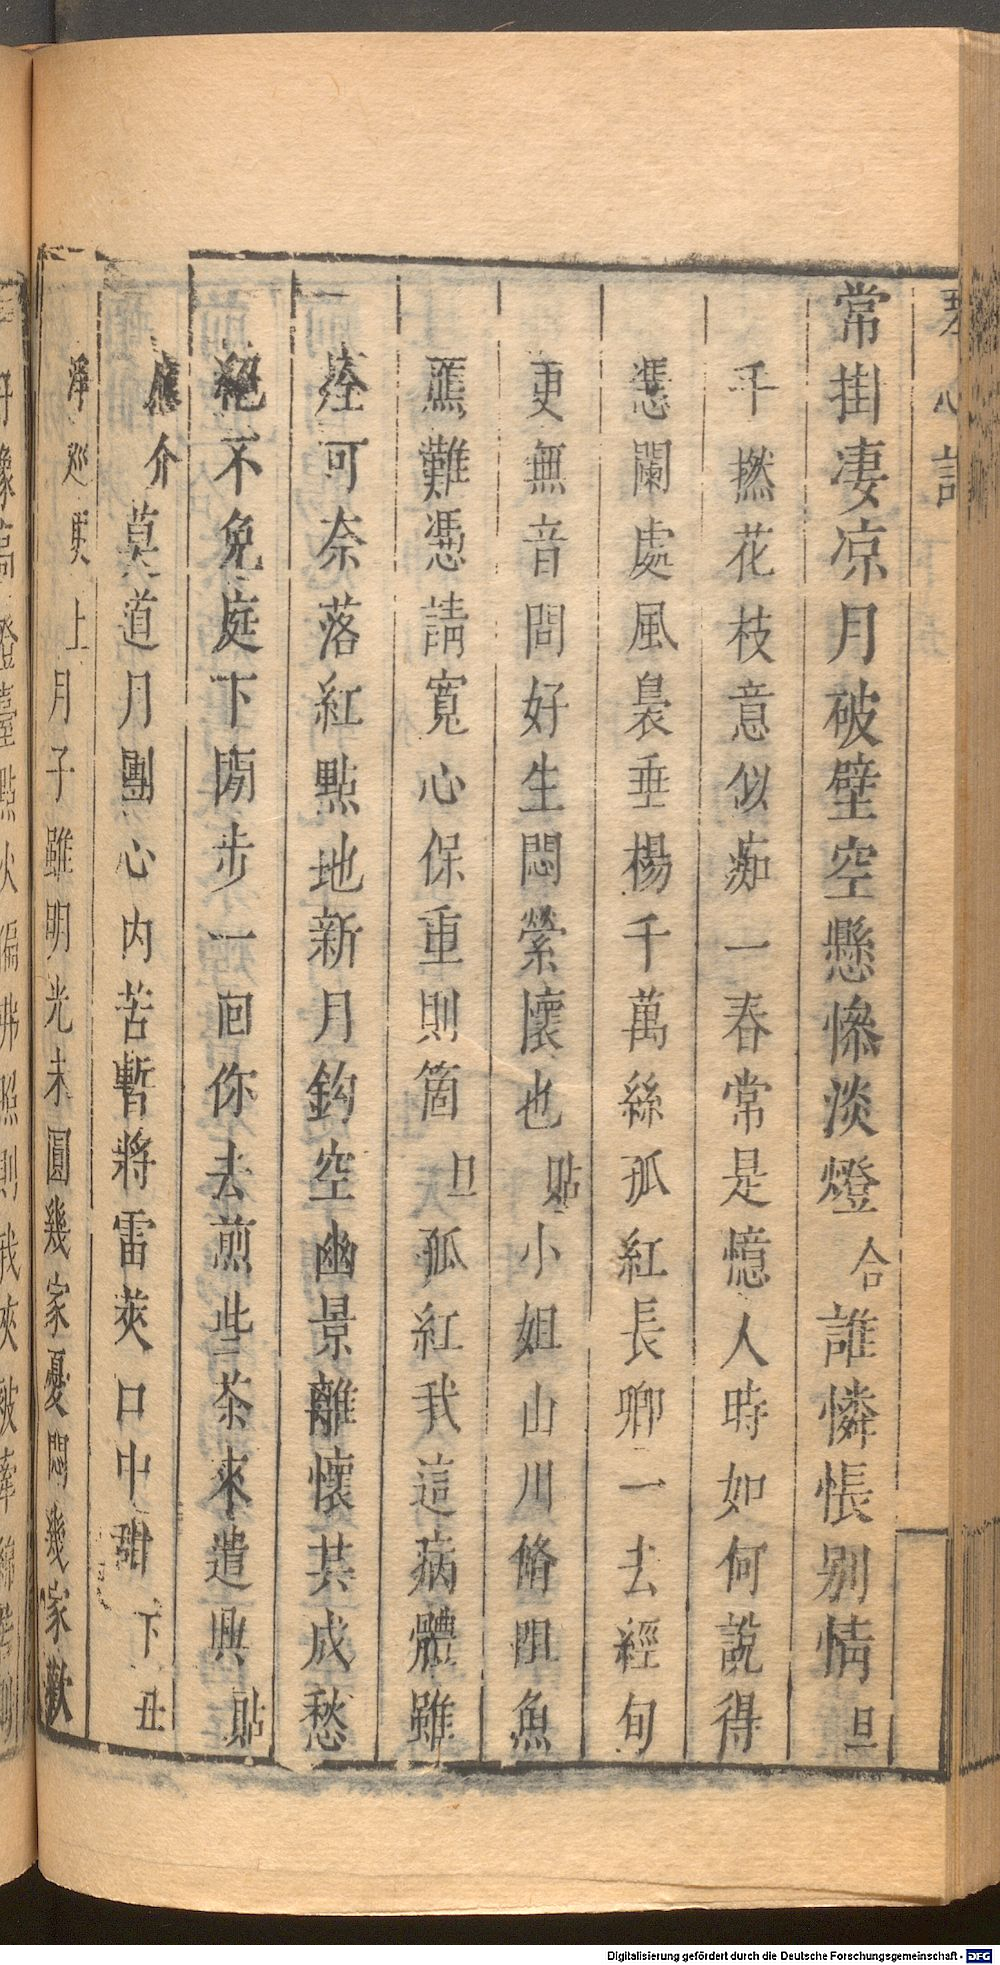 琴心記
常掛凄凉月破壁空懸慘淡燈合誰憐悵別情旦
千撚花枝意似痴一春常是憶人時如何說得
憑闌處風裊垂楊千萬絲孤紅長卿一去經旬
更無音問好生悶縈懷也貼小姐山川脩阻魚
鴈難憑請寬心保重則箇旦孤紅我這病體雖
痊可奈落紅點地新月鈎空幽景離懷共成愁
絕不免庭下閒步一回你去煎些茶來遣興貼
應介莫道月團心內苦暫將雷莢口中甜下丑
淨巡更上月子雖明光未圓幾家憂悶幾家歡
Digitalisierung gefördert durch die Deutsche Forschungsgemeinschaft - DFG